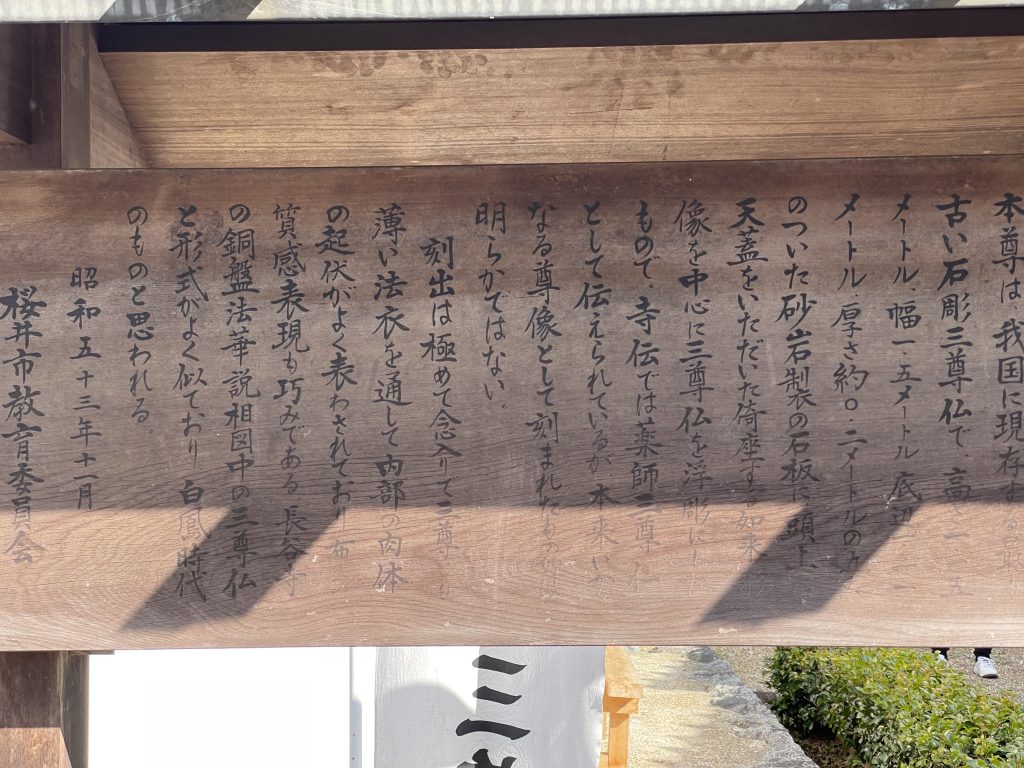 本尊は、我国に現存する最も
古い石彫三尊仏で、高さ一・二五
メートル、幅一・五メートル 底辺一・二
メートル、厚さ約〇・二メートルの
のついた砂岩製の石板に、頭上
天蓋をいただいた倚座する如来
像を中心に三尊仏を浮彫にした
もので、寺伝では薬師三尊
として伝えられているが、本来いか
なる尊像として刻まれたもの
明らかではない。
刻出は極めて念入りで三尊
薄い法衣を通して内部の肉体
の起伏がよく表わされており 布
質感表現も巧みである。長谷寺
の銅盤法華説相図中の三尊仏
と形式がよく似ており 白鳳時代
のものと思われる。
昭和五十三年十一月
桜井市教育委員会
三